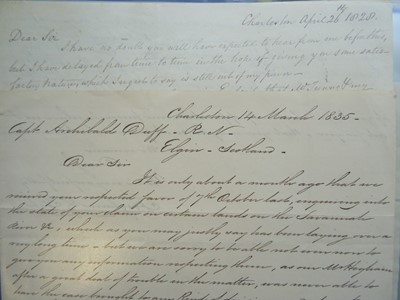 Charleston April 26th 1828.
Dear Sir
I have no doubt you will have expected to hear from me before this,
but I have delayed from time to time in the hope of giving you some satis-
factory tradings which I regret to say is still out of my power.
Charleston 14 March 1835 -
Capt. Archibald Duff - R. N. -
Elgin - Scotland -
Dear Sir
It is only about a month ago that we
received your respected favor of 7th October last, enquiring into
the state of your claim on certain lands on the Savannah
River &c, which as you may justly say has been laying over a
very long time - but we are sorry to be able not even now to
give you any information respecting them, as our Mr
after a great deal of trouble in the matter, was never able to
have the case brought to any kind of